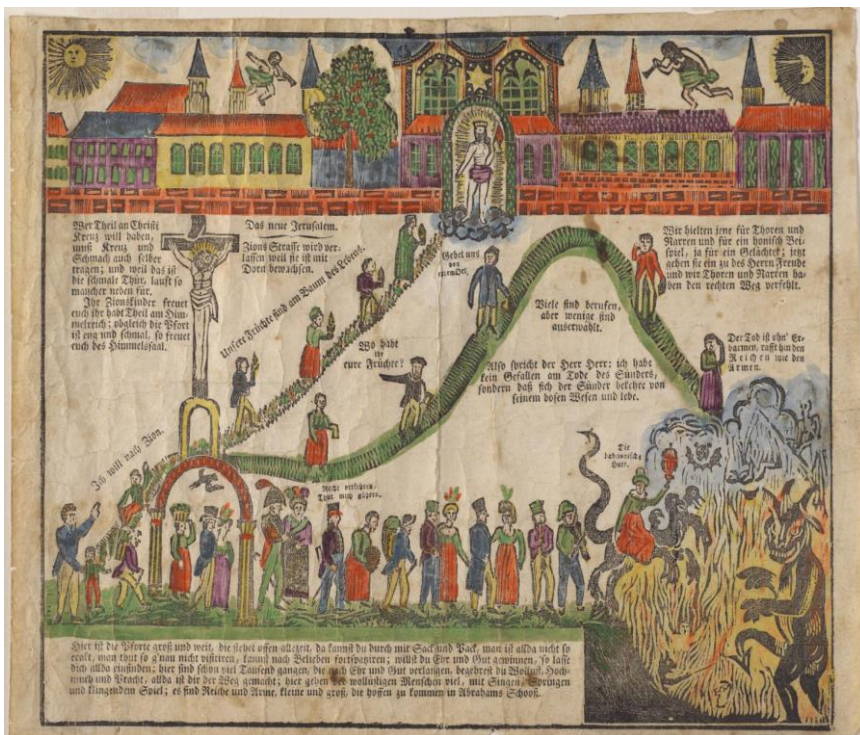 Das neue Jerusalem.
Wer Theil an Christi
Kreuz will haben,
muß Kreuz und
Schmach auch selber
tragen; und weil das ist
die schmale Thür, lauft so
mancher neben für.
Ihr Zionskinder freuet
euch ihr habt Theil am Him-
melreich; obgleich die Pfort
ist eng und schmal, so freuet
euch des Himmelssaal.
Zions Strasse wird ver-
lassen weil sie ist mit
Dorn bewachsen.
Unsere Früchte sind am Baum des Lebens.
Gebet uns
von
euren
Wir hielten jene für Thoren und
Narren und für ein honisch Bei-
spiel, ja für ein Gelächter; jetzt
gehen sie ein zu des Herrn Freude
und wir Thoren und Narren ha-
ben den rechten Weg verfehlt.
Viele sind berufen,
aber wenige sind
auserwählt.
Wo habt
ihr
eure Früchte?
Der Tod ist ohn' Er-
barmen, rafft hin den
Reichen wie den
Armen.
Also spricht der Herr Herr: ich habe
kein Gefallen am Tode des Sünders,
sondern daß sich der Sünder bekehre von
seinem bosen Wesen und lebe.
Ich will nach Zion.
Die
Hure.
Hier ist die Pforte groß und weit, die stehet offen allezeit, da kannst du durch mit Sack und Pack, man ist allda nicht so
exakt, man thut so g'nau nicht visitiren, kannst nach Belieben fortspaziren; willst du Ehr und Gut gewinnen, so lasse
dich allda einfinden; hier sind schon viel Tausend gangen, die nach Ehr und Gut verlangen, begehrest du Wollust, Hoch-
muth und Pracht, allda ist dir der Weg gemacht; hier gehen der wollustigen Menschen viel, mit Singen, Springen
und klingendem Spiel; es sind Reiche und Arme, kleine und groß, die hoffen zu kommen in Abrahams Schooß.